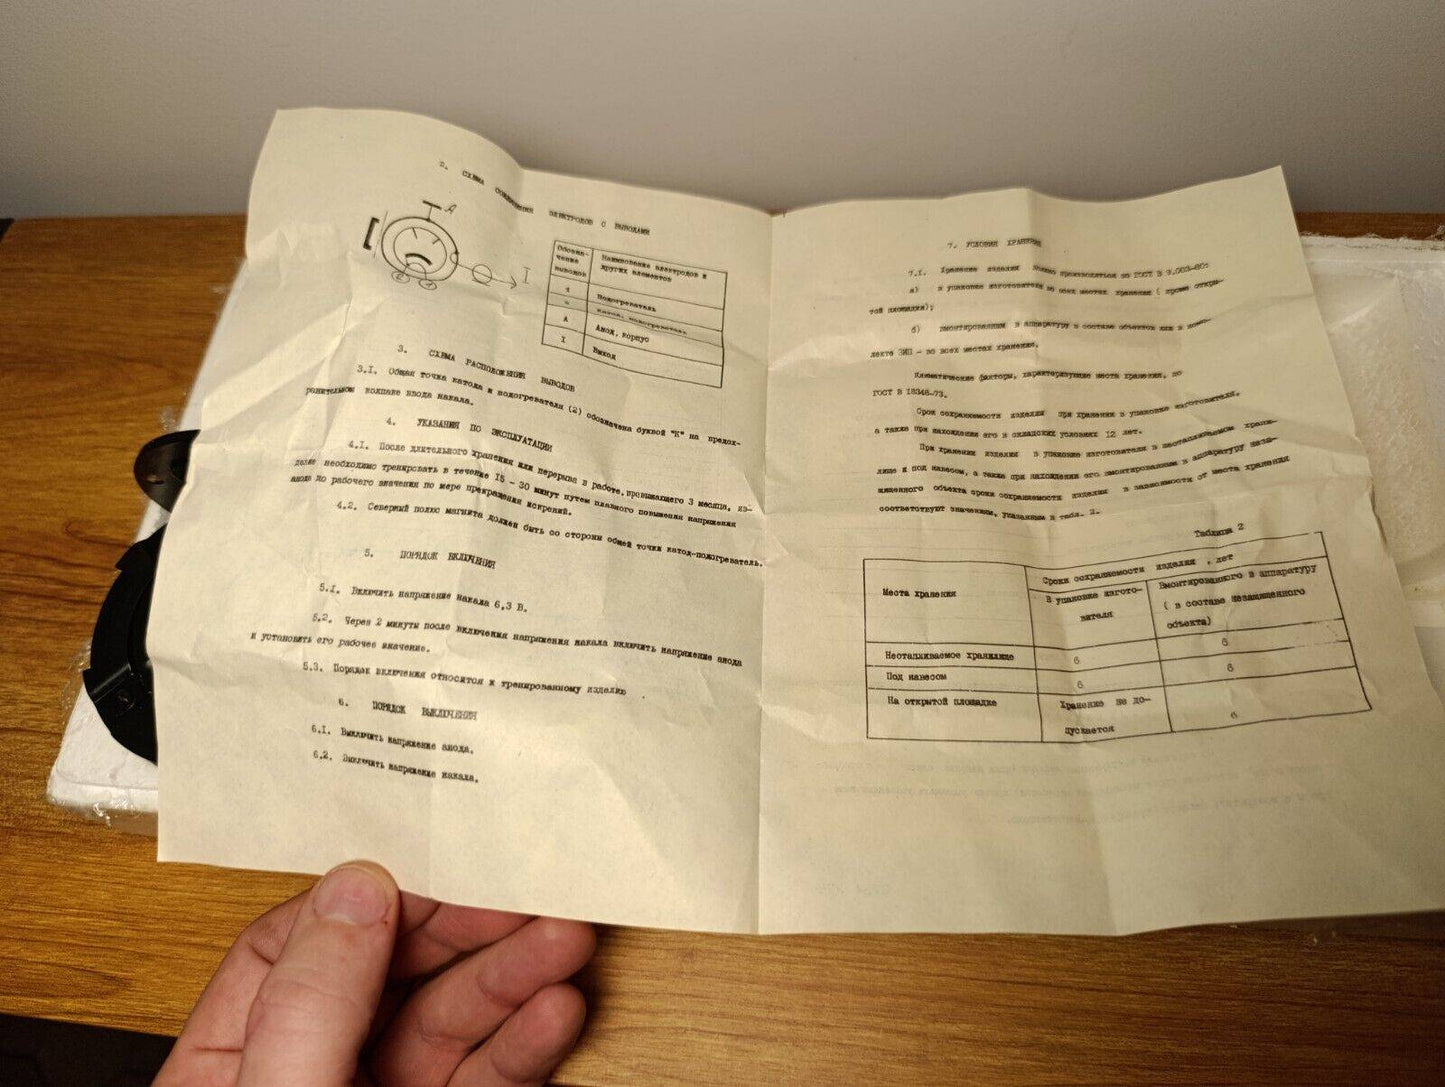 2. СХЕМА СОЕДИНЕНИЯ ЭЛЕКТРОДОВ С ВЫВОДАМИ
А
I
Обозна-
чение
выводов
Наименование электродов и
других элементов
Подогреватель
Катод, подогреватель
А
Анод, корпус
I
Выход
3. СХЕМА РАСПОЛОЖЕНИЯ ВЫВОДОВ
3.I. Общая точка катода и подогревателя (2) обозначена буквой "К" на предох-
ранительном колпаке ввода накала.
4. УКАЗАНИЯ ПО ЭКСПЛУАТАЦИИ
4.I. После длительного хранения или перерыва в работе, превышающего 3 месяца, из-
делие необходимо тренировать в течение I5 - 30 минут путем плавного повышения напряжения
анода до рабочего значения по мере прекращения искрений.
4.2. Северный полюс магнита должен быть со стороны общей точки катод-подогреватель.
5. ПОРЯДОК ВКЛЮЧЕНИЯ
5.I. Включить напряжение накала 6,3 В.
5.2. Через 2 минуты после включения напряжения накала включить напряжение анода
и установить его рабочее значение.
5.3. Порядок включения относится к тренированному изделию .
6. ПОРЯДОК ВЫКЛЮЧЕНИЯ
6.I. Выключить напряжение анода.
6.2. Выключить напряжение накала.
7. УСЛОВИЯ ХРАНЕНИЯ
7.I. Хранение изделия должно производиться по ГОСТ В 9.003-80:
а) в упаковке изготовителя во всех местах хранения ( кроме откры-
той площадки);
б) вмонтированным в аппаратуру в составе объектов или в комп-
лекте ЗИП - во всех местах хранения.
Климатические факторы, характеризующие места хранения, по
ГОСТ В 18348-73.
Срок сохраняемости изделия при хранении в упаковке изготовителя,
а также при нахождении его в складских условиях 12 лет.
При хранении изделия в упаковке изготовителя в неотапливаемом храни-
лище и под навесом, а также при нахождении его вмонтированным в аппаратуру неза-
щищенного объекта сроки сохраняемости изделия в зависимости от места хранения
соответствуют значениям, указанным в табл. 2.
Таблица 2
Места хранения
Сроки сохраняемости изделия , лет
В упаковке изгото-
вителя
Вмонтированного в аппаратуру
( в составе незащищенного
объекта)
Неотапливаемое хранилище
6
6
Под навесом
6
6
На открытой площадке
Хранение не до-
пускается
6